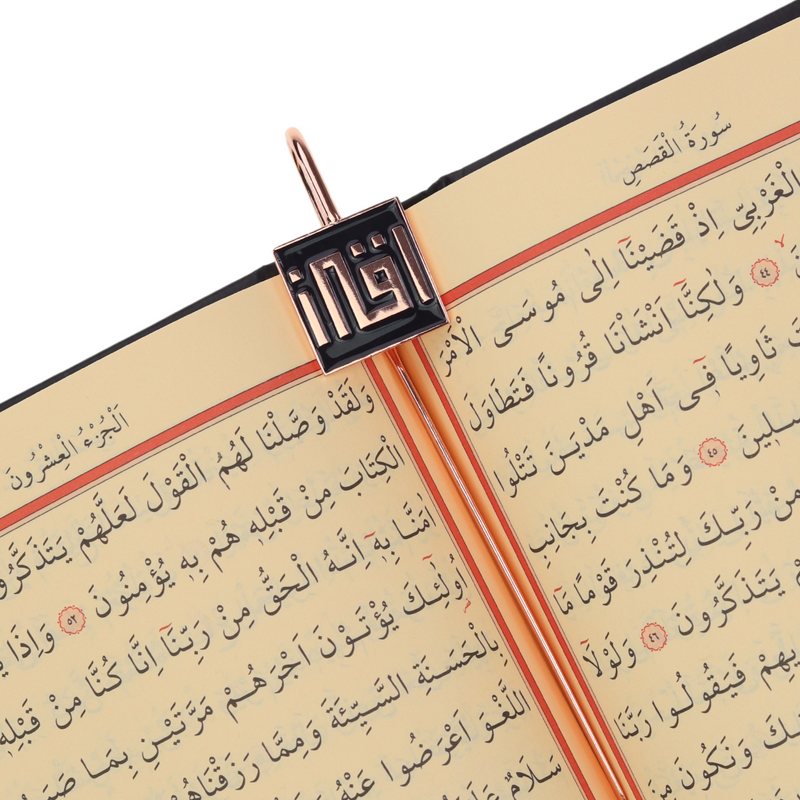 سُورَةُ الْقَصَصِ
الْغَرْبِيِّ اِذْ قَضَيْنَٓا اِلٰى مُوسَى الْاَمْرَ
٤٤ وَلٰكِنَّٓا اَنْشَأْنَا قُرُوناً فَتَطَاوَلَ
ثَاوِياً ف۪ٓي اَهْلِ مَدْيَنَ تَتْلُوا
٤٥ وَمَا كُنْتَ بِجَانِبِ
مِنْ رَبِّكَ لِتُنْذِرَ قَوْماً مَٓا
يَتَذَكَّرُونَ ٤٦ وَلَوْلَٓا
فَيَقُولُوا رَبَّنَا
وَنَكُونَ مِنَ
اقرأ
اَلْجُزْءُ الْعِشْرُونَ
وَلَقَدْ وَصَّلْنَا لَهُمُ الْقَوْلَ لَعَلَّهُمْ يَتَذَكَّرُونَ
الْكِتَابَ مِنْ قَبْلِه۪ هُمْ بِه۪ يُؤْمِنُونَ ٥٢ وَاِذَا
اٰمَنَّا بِه۪ٓ اِنَّهُ الْحَقُّ مِنْ رَبِّنَٓا اِنَّا كُنَّا مِنْ قَبْلِه۪
اُو۬لٰٓئِكَ يُؤْتَوْنَ اَجْرَهُمْ مَرَّتَيْنِ بِمَا
بِالْحَسَنَةِ السَّيِّئَةَ وَمِمَّا رَزَقْنَاهُمْ
اللَّغْوَ اَعْرَضُوا عَنْهُ
سَلَامٌ